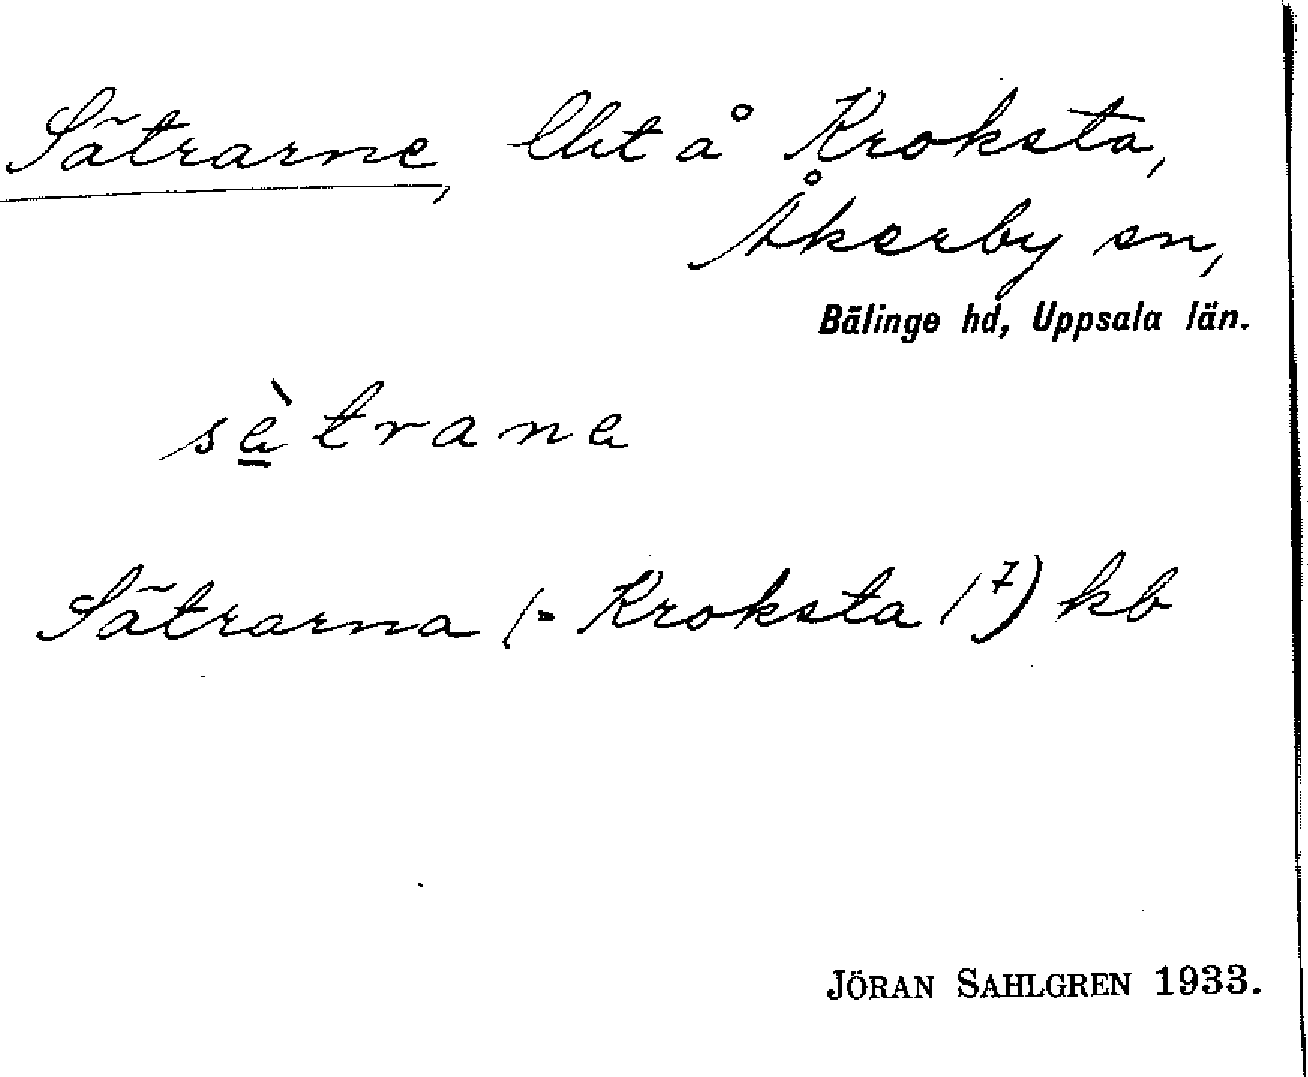 Sätrarne, lht å Kroksta,
Åkerby sn,
Bälinge hd, Uppsala län.
sè̱trana
Sätrarna (= Kroksta 1⁷) kb
JÖRAN SAHLGREN 1933.